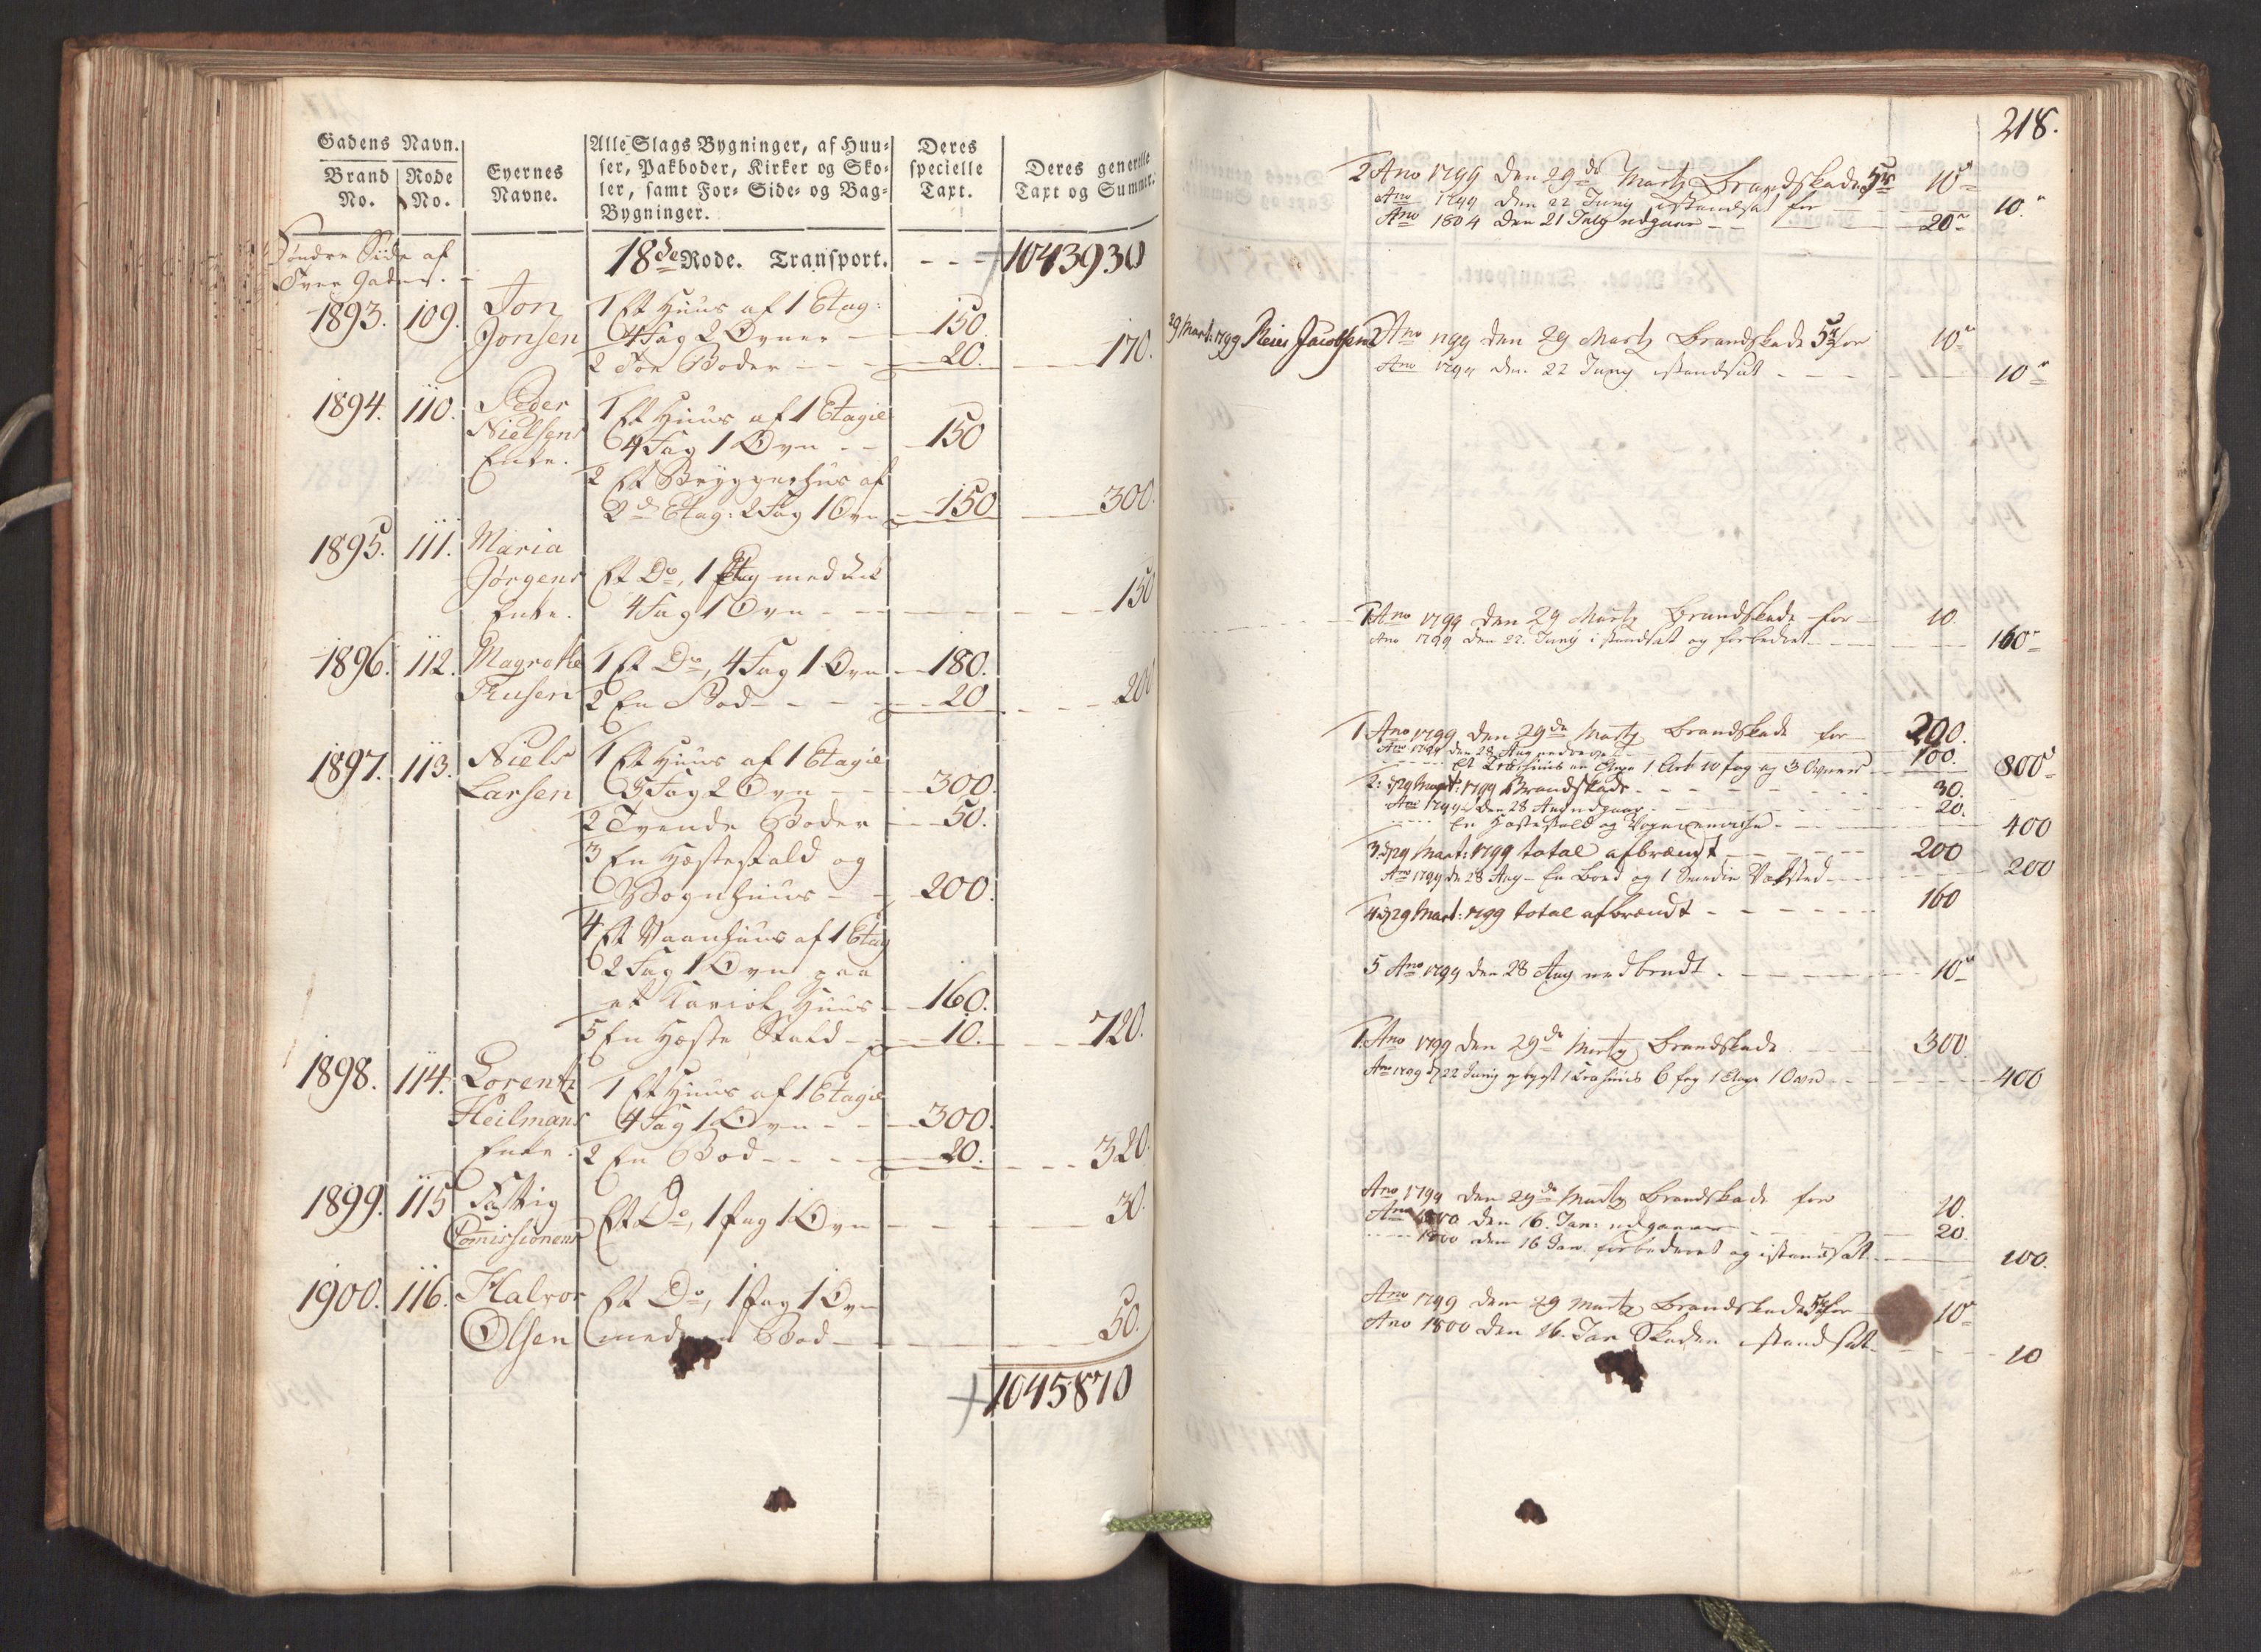 Gadens Navn.
Brand No.
Rode No.
Eyernes Navne.
Alle Slags Bygninger, af Huu-
ser, Pakboder, Kirker og Sko-
ler, samt For- Side- og Bag-
Bygninger.
Deres
specielle
Taxt.
Deres generelle
Taxt og Summer.
Søndre Side af
Tver Gaden.
18de Rode. Transport. - - - 1043930
1893. 109. Jon 1 Et Huus af 1 Etag:
Jonsen 4 Fag 2 Ovner - 150.
2 Toe Boder - - - 20. 170.
1894. 110. Peder 1 Et Huus af 1 Etagie
Nielsens 4 Fag 1 Ovn - - 150
Enke. 2 Et Bryggerhus af
2de Etag: 2 Fag 1 Ovn 150 300.
1895. 111. Maria
Jørgens Et Do, 1 Etag med
Enke. 4 Fag 1 Ovn - - - 150
1896. 112. Magrethe 1 Et Do, 4 Fag 1 Ovn 180.
Trusen 2 En Bod - - - 20 200
1897. 113. Niels 1 Et Huus af 1 Etagie
Larsen 5 Fag 2 Ovn - - 300.
2 Tvende Boder - 50.
3 En Hestestald og
Vognhuus - - 200.
4 Et Vaanhuus af 1 Etag
2 Fag 1 Ovn paa
et Kariol Huus - 160.
5 En Heste Stald - - 10. 720.
1898. 114. Lorentz 1 Et Huus af 1 Etagie
Heilmans 4 Fag 1 Ovn - - 300.
Enke. 2 En Bod - - - 20. 320.
1899. 115 Fattig Et Do, 1 fag 1 Ovn - - 30.
Comissionens
1900. 116. Halvor Et Do, 1 fag 1 Ovn
Olsen med en Bod - - 50.
1045870
218.
2 Ano 1799 den 29de Martz Brandskade 10
Ano 1799 den 22 Juny istandsat for 10.
Ano 1804 den 21 July udgaar - - 20
29 Mart: 1799 Reier Jacobsen 2 Ano 1799 den 29 Martz Brandskade for 10
Ano 1799 den 22 Juny istandsat - - 10
1 Ano 1799 den 29 Martz Brandskade for - 10.
Ano 1799 den 22. Juny istandsat og forbedret - - 160
1 Ano 1799 den 29de Martz Brandskade for 200.
Ano 1799 den 28 Aug nedreven 100.
Et Træehuus en Etage 1 Qvist 10 fag og 3 Ovner - 800
2: d 29 Mart: 1799 Brandskade - - - 30.
Ano 1799 den 28 Aug udgaar - - 20.
En Hestestald og Vognremisse - - 400
3: d 29 Mart: 1799 total afbrændt - - 200
Ano 1799 d 28 Aug - En Bod og 1 Smedie Værksted - - 200
4: d 29 Mart: 1799 total afbrændt - - 160
5 Ano 1799 den 28 Aug nedbrudt - - 10
1. Ano 1799 den 29de Martz Brandskade - - 300.
Ano 1799 d 22 Juny opbygt 1 Træhuus 6 fag 1 Etage 1 Ovn - - 400
Ano 1799 den 29de Martz Brandskade for 10.
Ano 1800 den 16. Jan: udgaaer - - 20.
1800 den 16 Jan. forbedret og istandsat - - 100.
Ano 1799 den 29 Martz Brandskade for - 10
Ano 1800 den 16. Jan Skaden istandsat - - 10